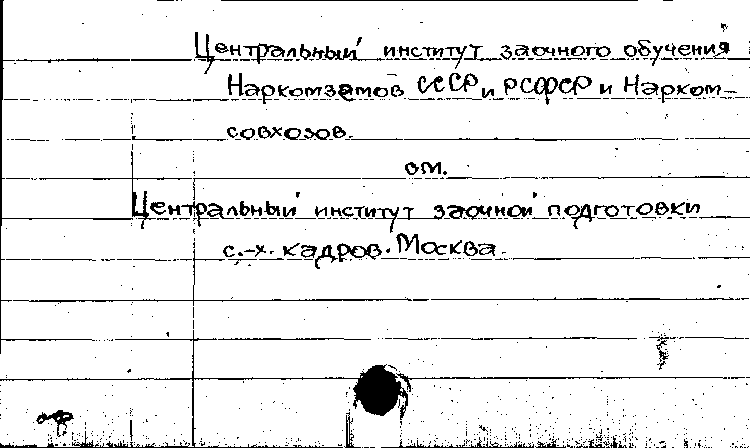 Центральный институт заочного обучения
Наркомземов СССР и РСФСР и Нарком-
совхозов.
см.
Центральный институт заочной подготовки
с.-х. кадров. Москва.